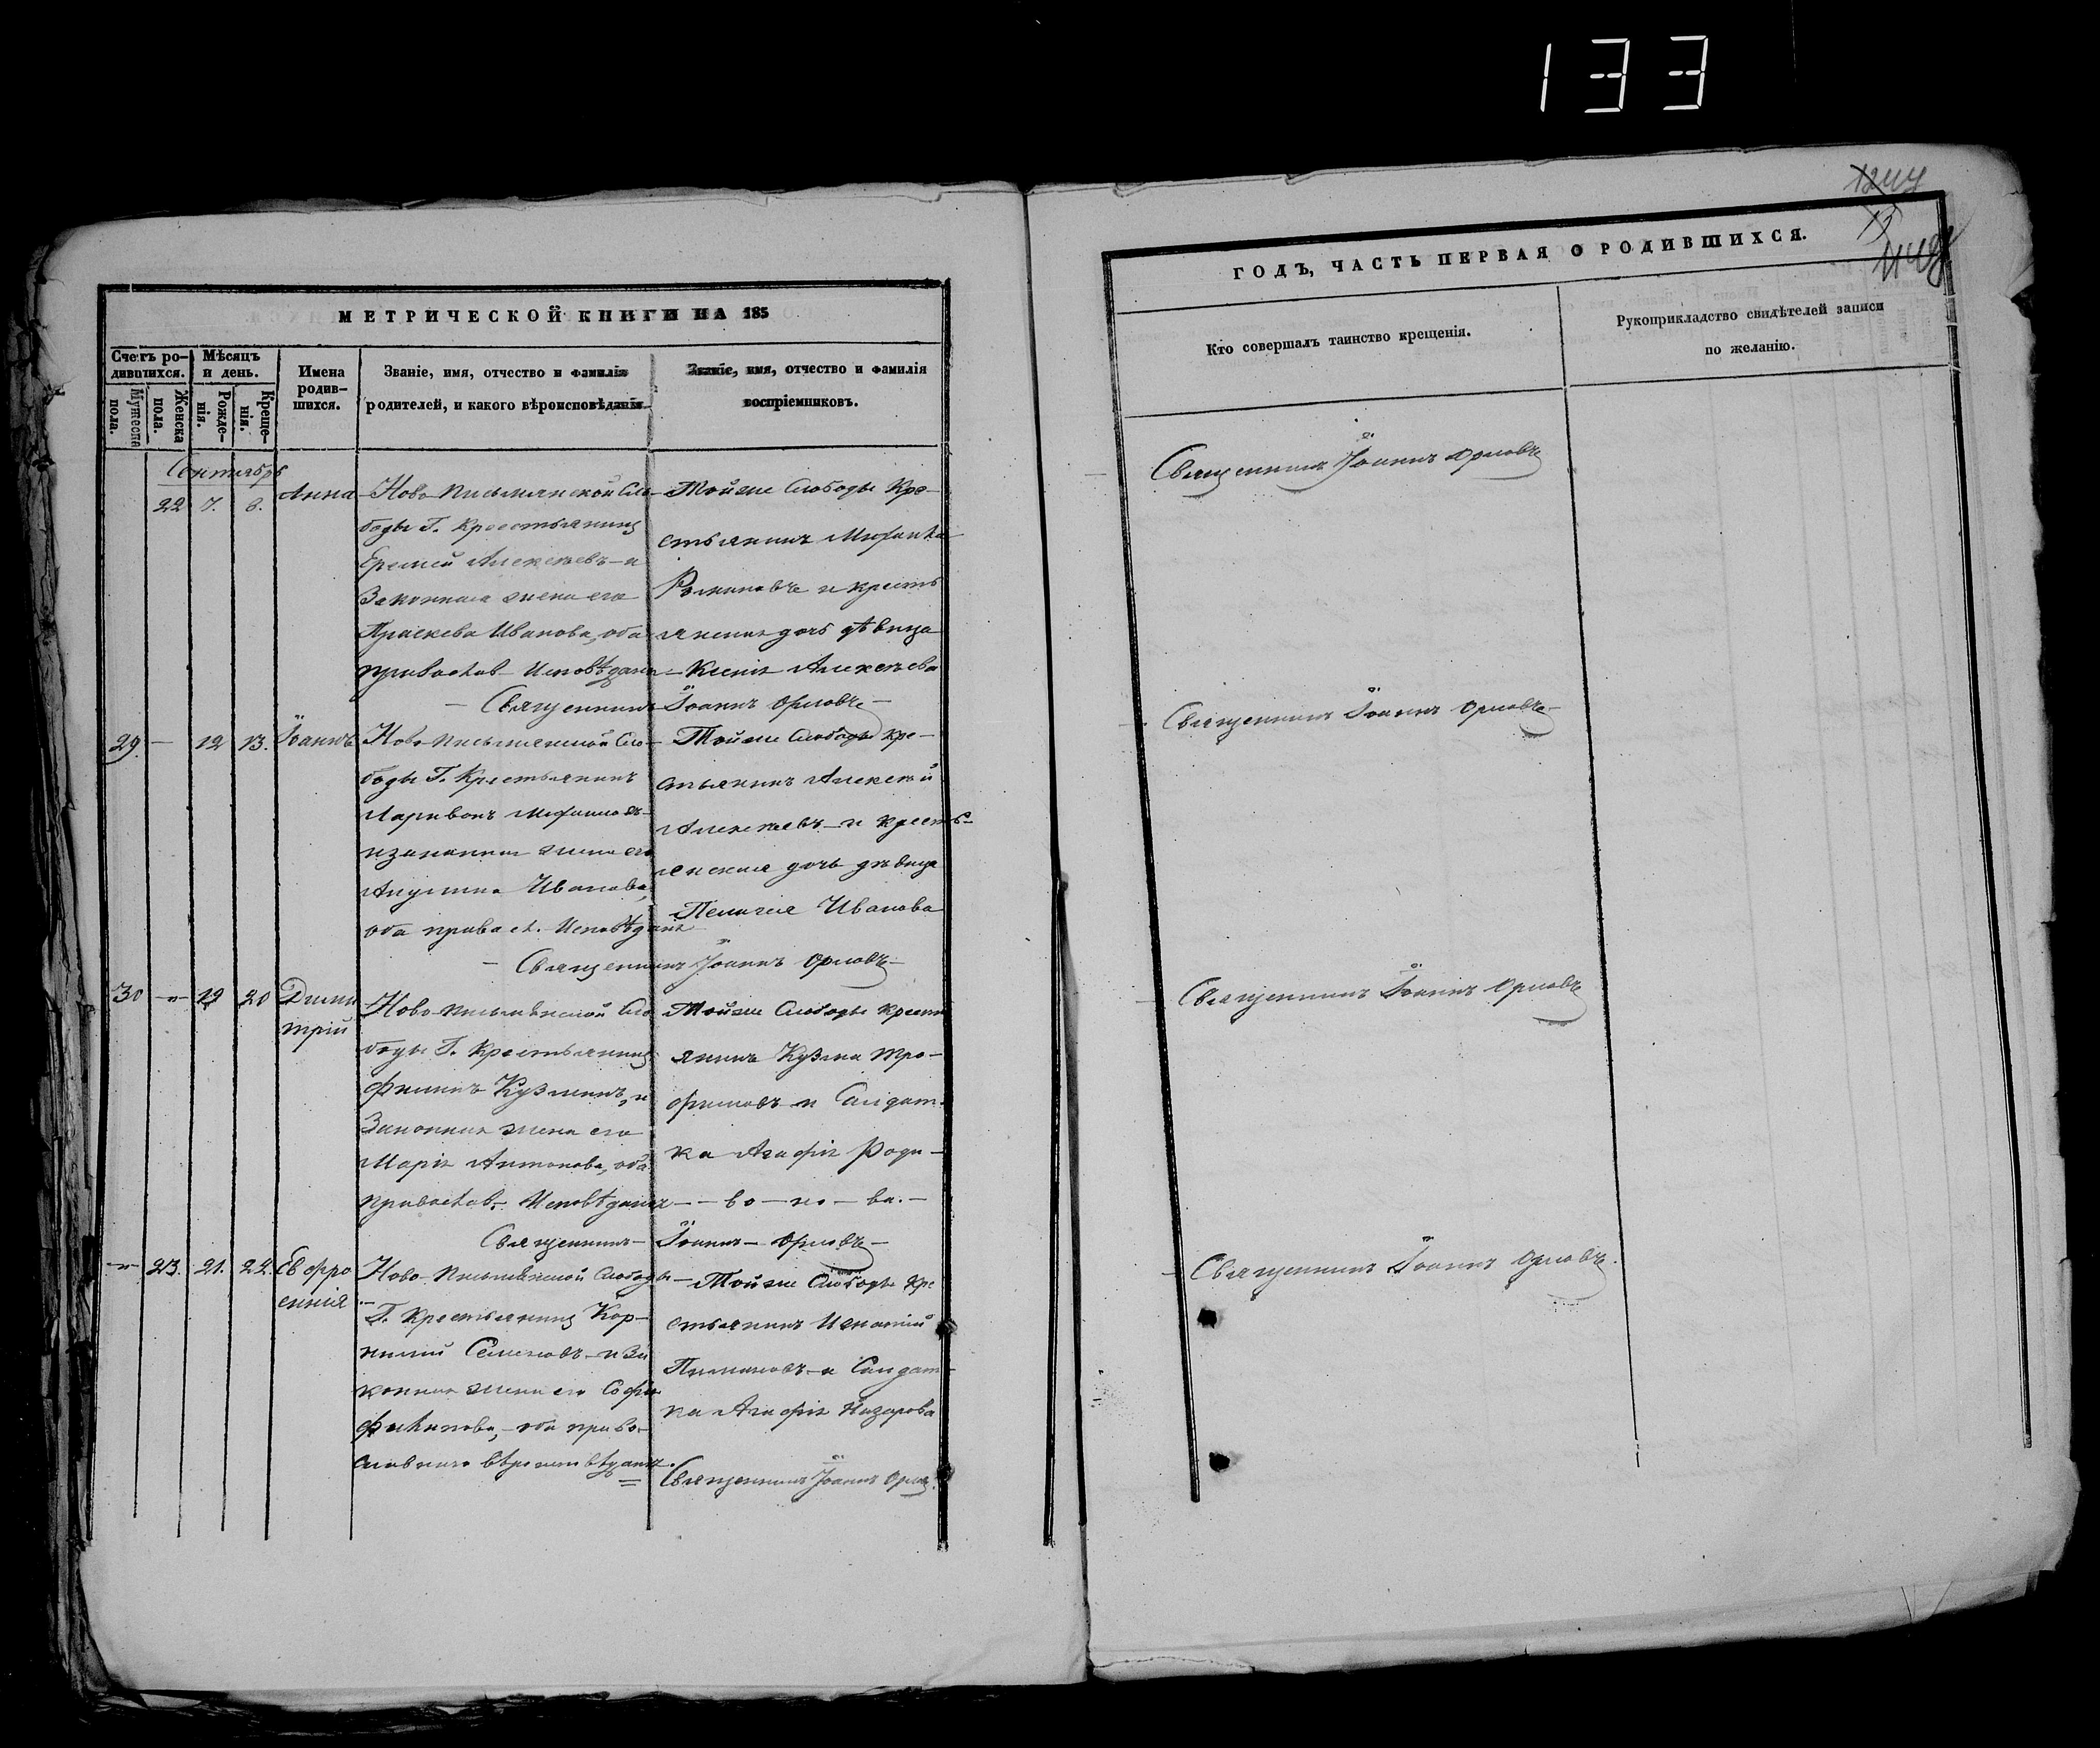 133
1244
МЕТРИЧЕСКОЙ КНИГИ НА 185
Счетъ ро-
дившихся.
Мужеска
пола.
Женска
пола.
Мѣсяцъ
и день.
Рожде-
нія.
Креще-
нія.
Имена
родив-
шихся.
Званіе, имя, отчество и фамилія
родителей, и какого вѣроисповѣданія
Званіе, имя, отчество и фамилія
воспріемниковъ.
Сентябрь
22 7. 8. Анна
Ново-Письмянской Сло-
боды Г. Крестьянинъ
Еремей Алексѣевъ - и
Законная жена его
Праскева Иванова, оба
православ- Исповѣданія
Тойже Слободы Кре-
стьянинъ
Романовъ и кресть
янская дочь дѣвица
Ксенія Алексѣева
Священникъ Іоаннъ Орловъ
29. - 12 13. Іоаннъ
Ново-Письмянской Сло-
боды Г. Крестьянинъ
Ларивонъ
и законная жена его
Акулина Иванова,
оба правосл. Исповѣданія
Тойже Слободы Кре-
стьянинъ Алексѣй
Алексѣевъ - и кресть-
янская дочь дѣвица
Пелагея Иванова
Священникъ Іоаннъ Орловъ
30 -"- 19 20 Дими
трій
Ново-Письмянской Сло
боды Г. Крестьянинъ
Кузминъ, и
Законная жена его
Марія Антонова, оба
православ. Исповѣданія
Тойже Слободы Крест
янинъ Кузма Тро-
фимовъ - и Салдат-
ка Агафія Роди-
- во - но - ва. -
Священникъ - Іоаннъ - Орловъ -
-"- 23. 21. 22. Евфро
синія
Ново-Письмянской Слободы
Г. Крестьянинъ Кор-
нилій Семеновъ - и За
конная жена его Софія
Филипова, - оба право-
славнаго вѣроисповѣданія.
Тойже Слободы Кре
стьянинъ Игнатій
Пимановъ - и Салдат-
ка Агафія Назарова
Священникъ Іоаннъ Орловъ.
ГОДЪ, ЧАСТЬ ПЕРВАЯ О РОДИВШИХСЯ.
Кто совершалъ таинство крещенія.
Рукоприкладство свидѣтелей записи
по желанію.
Священникъ Іоаннъ Орловъ
Священникъ Іоаннъ Орловъ
Священникъ Іоаннъ Орловъ
Священникъ Іоаннъ Орловъ.